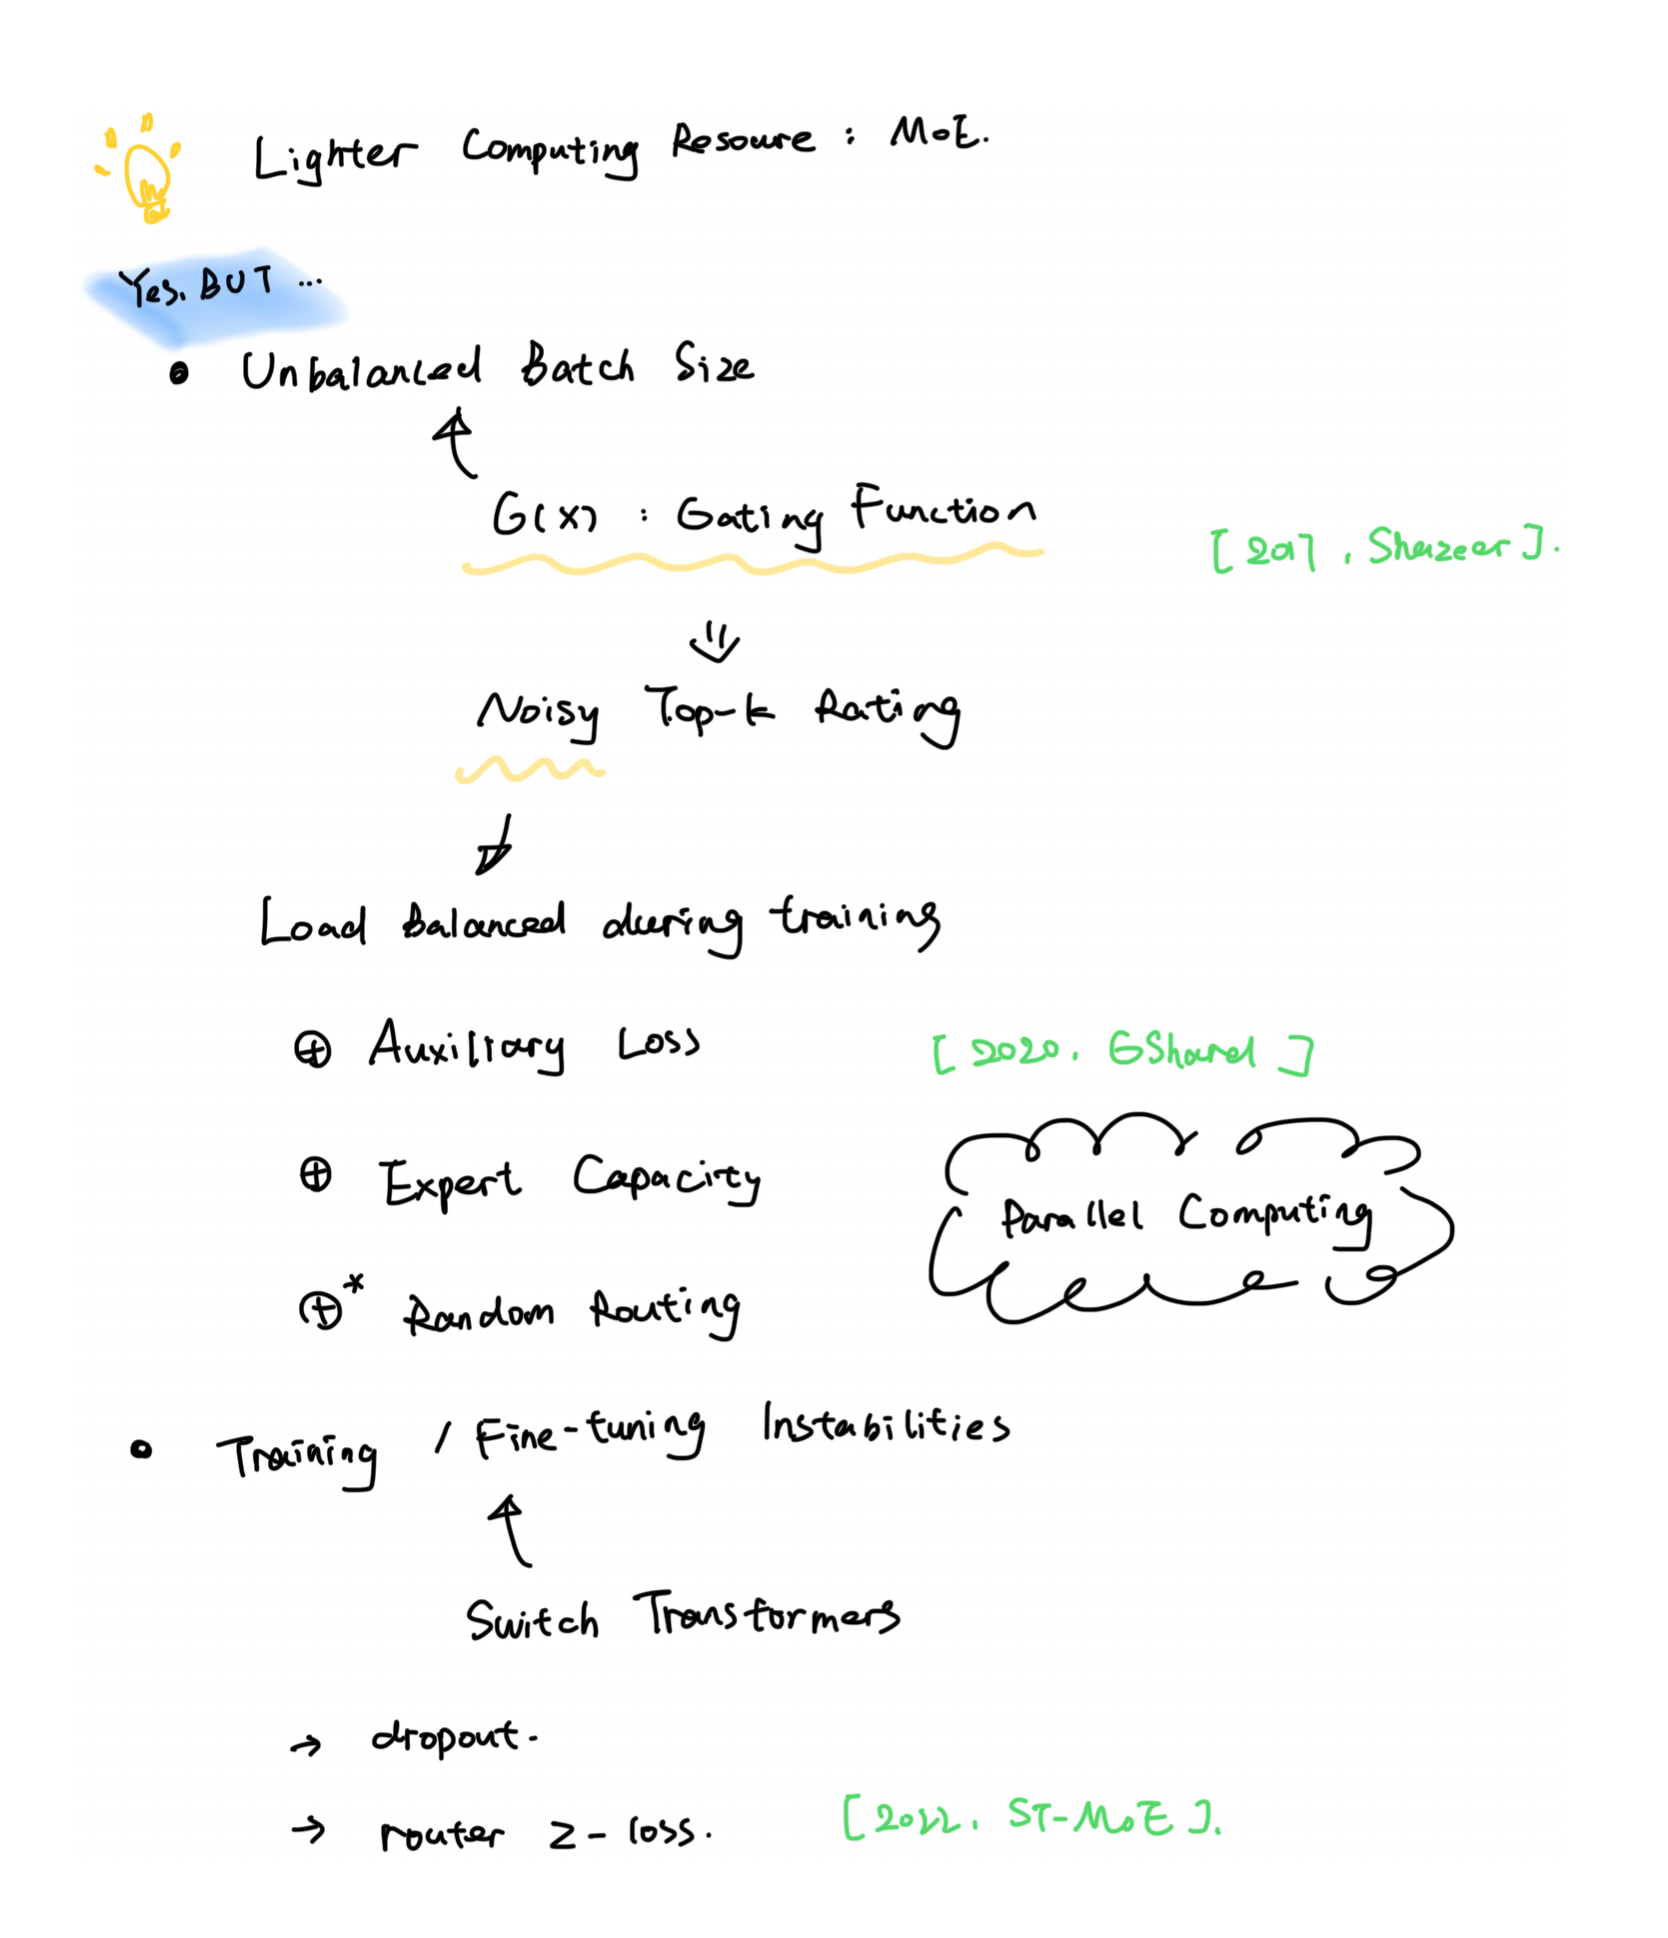 Lighter Computing Resource : MoE.
Yes, BUT ...
• Unbalanced Batch Size
G(x) : Gating Function
[2017, Shazeer].
Noisy Top-k Rating
Load Balanced during training
⊕ Auxiliary Loss
[2020, GShard]
⊕ Expert Capacity
Parallel Computing
⊕* Random Routing
• Training / Fine-tuning Instabilities
Switch Transformers
→ dropout.
→ router z-loss.
[2022, ST-MoE].